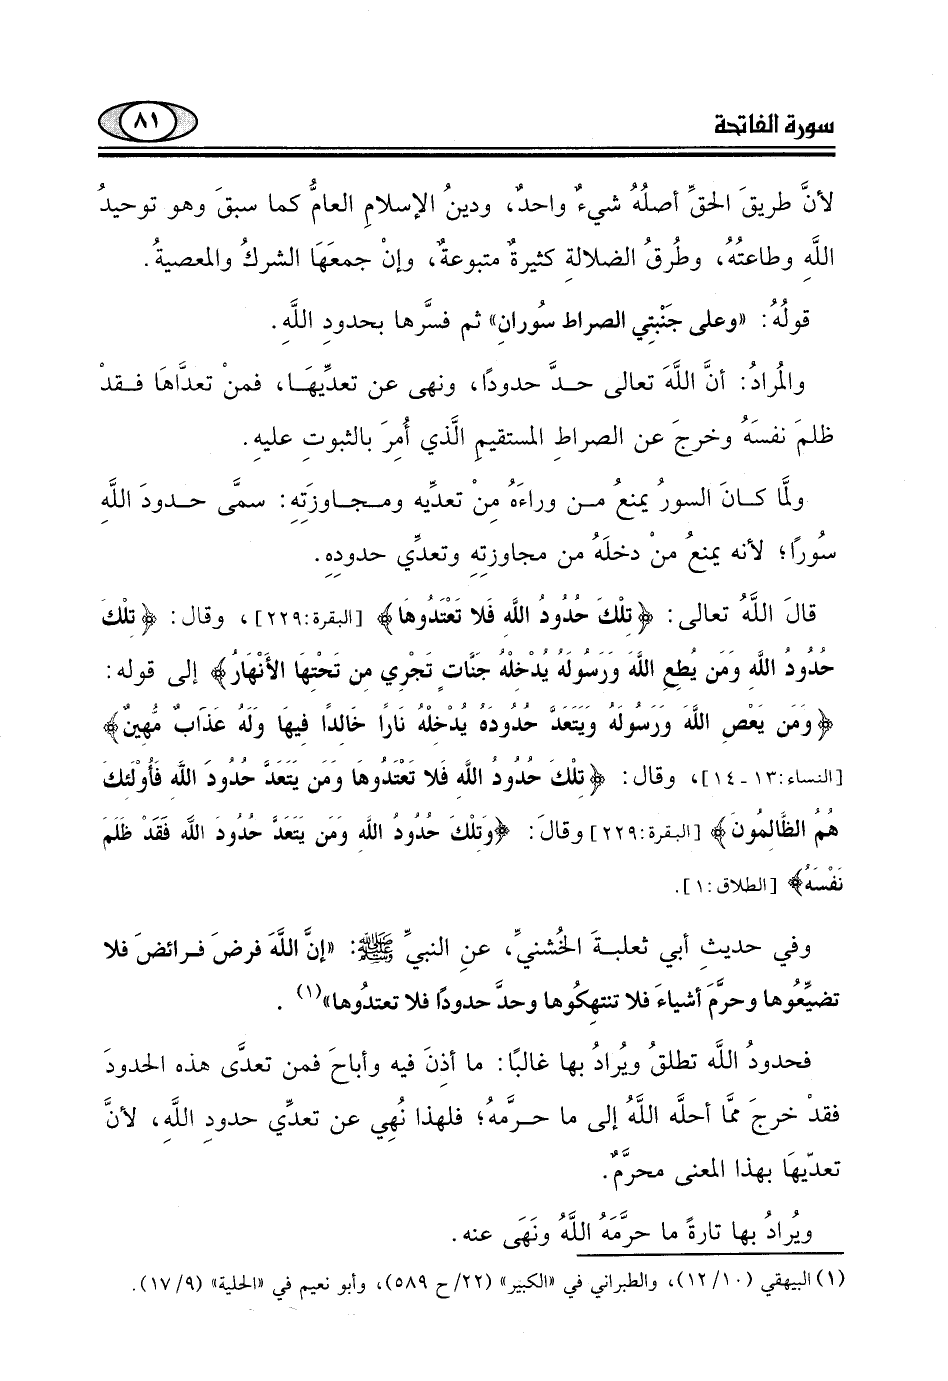 سورة الفاتحة ٨١
لأنَّ طريقَ الحقِّ أصلُهُ شيءٌ واحدٌ، ودينُ الإسلامِ العامُّ كما سبقَ وهو توحيدُ
اللَّهِ وطاعتُهُ، وطُرقُ الضلالةِ كثيرةٌ متبوعةٌ، وإنْ جمعَهَا الشركُ والمعصيةُ.
قولُهُ: «وعلى جَنْبتي الصراط سُورانِ» ثم فسَّرها بحدودِ اللَّهِ.
والمُرادُ: أنَّ اللَّهَ تعالى حدَّ حدودًا، ونهى عن تعدِّيهَا، فمنْ تعدَّاهَا فقدْ
ظلمَ نفسَهُ وخرجَ عن الصراطِ المستقيمِ الَّذي أُمِرَ بالثبوتِ عليهِ.
ولمَّا كانَ السورُ يمنعُ من وراءَهُ مِنْ تعدِّيه ومجاوزتِهِ: سمَّى حدودَ اللَّهِ
سُورًا؛ لأنه يمنعُ منْ دخلَهُ من مجاوزتِهِ وتعدِّي حدودِهِ.
قالَ اللَّهُ تعالى: ﴿تِلْكَ حُدُودُ اللَّهِ فَلا تَعْتَدُوهَا﴾ [البقرة:٢٢٩]، وقال: ﴿تِلْكَ
حُدُودُ اللَّهِ وَمَن يُطِعِ اللَّهَ وَرَسُولَهُ يُدْخِلْهُ جَنَّاتٍ تَجْرِي مِن تَحْتِهَا الأَنْهَارُ﴾ إلى قوله:
﴿وَمَن يَعْصِ اللَّهَ وَرَسُولَهُ وَيَتَعَدَّ حُدُودَهُ يُدْخِلْهُ نَارًا خَالِدًا فِيهَا وَلَهُ عَذَابٌ مُّهِينٌ﴾
[النساء:١٣-١٤]، وقال: ﴿تِلْكَ حُدُودُ اللَّهِ فَلا تَعْتَدُوهَا وَمَن يَتَعَدَّ حُدُودَ اللَّهِ فَأُوْلَئِكَ
هُمُ الظَّالِمُونَ﴾ [البقرة:٢٢٩] وقالَ: ﴿وَتِلْكَ حُدُودُ اللَّهِ وَمَن يَتَعَدَّ حُدُودَ اللَّهِ فَقَدْ ظَلَمَ
نَفْسَهُ﴾ [الطلاق:١].
وفي حديثِ أبي ثعلبةَ الخُشنيِّ، عنِ النبيِّ ﷺ: «إنَّ اللَّهَ فرضَ فرائضَ فلا
تضيِّعُوها وحرَّمَ أشياءَ فلا تنتهِكُوها وحدَّ حدودًا فلا تعتدُوها»(١).
فحدودُ اللَّه تطلقُ ويُرادُ بها غالبًا: ما أذنَ فيه وأباحَ فمن تعدَّى هذه الحدودَ
فقدْ خرجَ ممَّا أحلَّه اللَّهُ إلى ما حرَّمهُ؛ فلهذا نُهِي عن تعدِّي حدودِ اللَّهِ، لأنَّ
تعدّيهَا بهذا المعنى محرَّمٌ.
ويُرادُ بها تارةً ما حرَّمَهُ اللَّهُ ونَهَى عنه.
(١) البيهقي (١٠/١٢)، والطبراني في «الكبير» (٢٢/ح ٥٨٩)، وأبو نعيم في «الحلية» (٩/١٧).